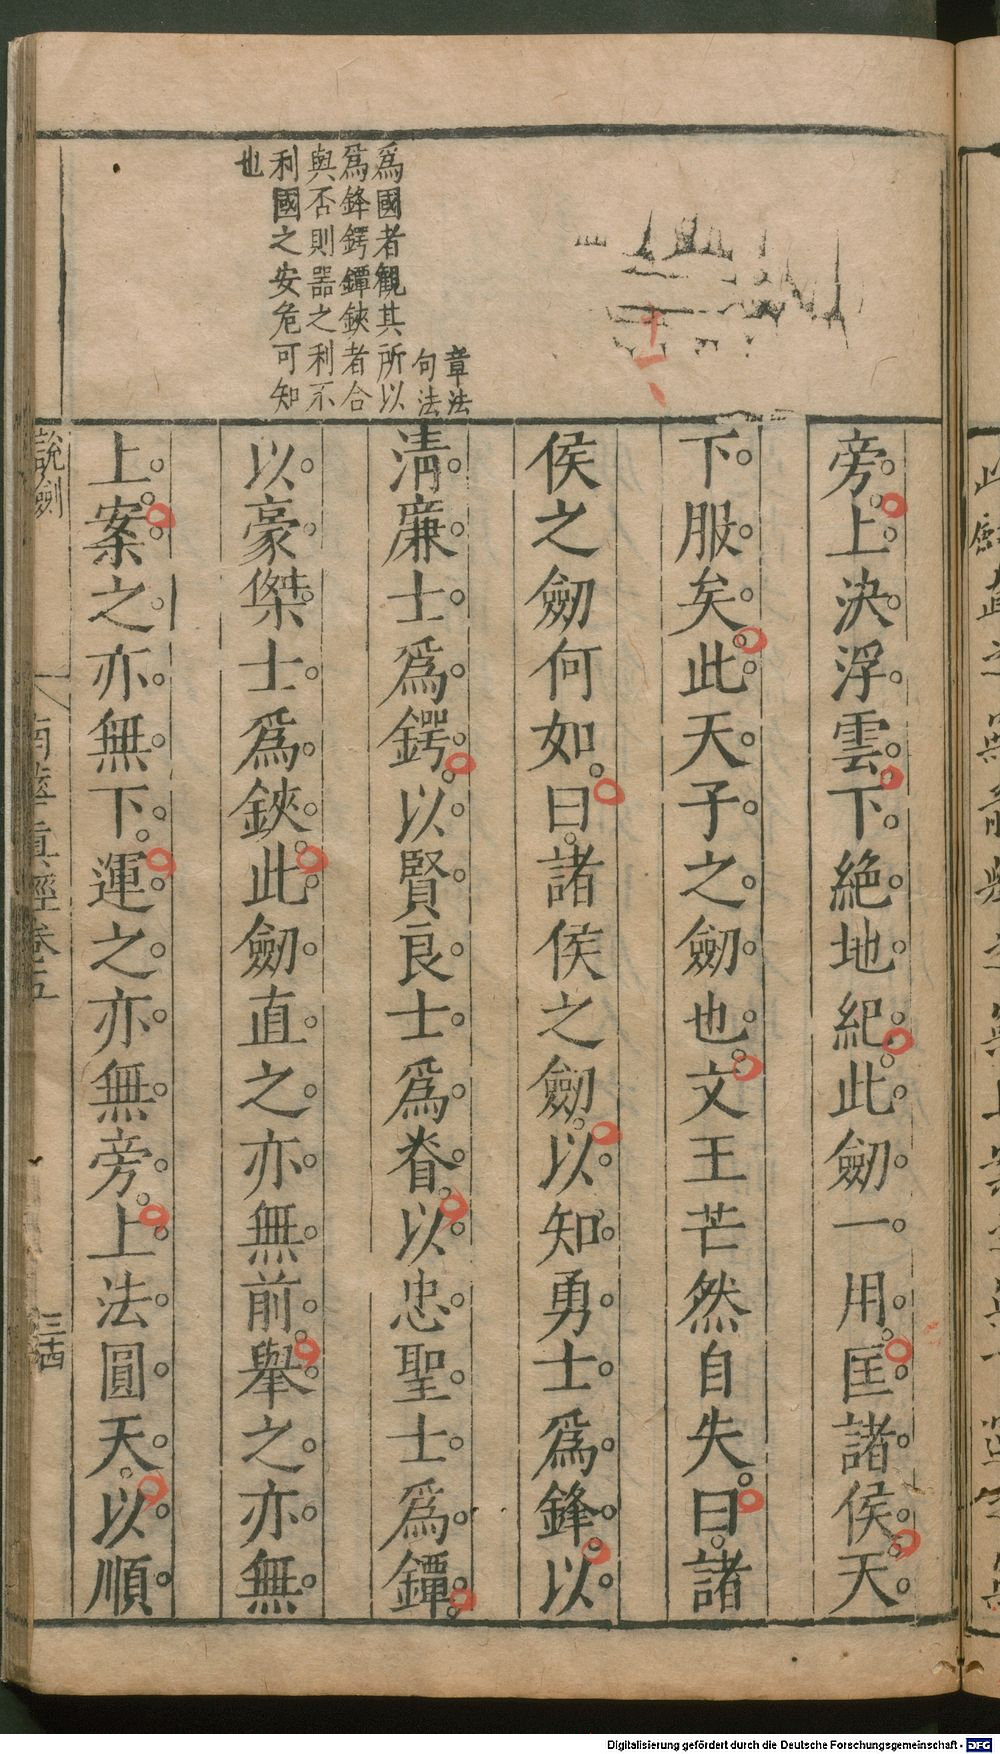 章法
句法
爲國者観其所以
爲鋒鍔鐔鋏者合
與否則器之利不
利國之安危可知
也
旁。上決浮雲。下絕地紀。此劒一用。匡諸侯。天
下服矣。此天子之劒也。文王芒然自失。曰。諸
侯之劒何如。曰。諸侯之劒。以知勇士爲鋒。以
清廉士爲鍔。以賢良士爲脊。以忠聖士爲鐔。
以豪傑士爲鋏。此劒直之亦無前。舉之亦無
上。案之亦無下。運之亦無旁。上法圓天。以順
說劍
南華真經卷五
Digitalisierung gefördert durch die Deutsche Forschungsgemeinschaft - DFG